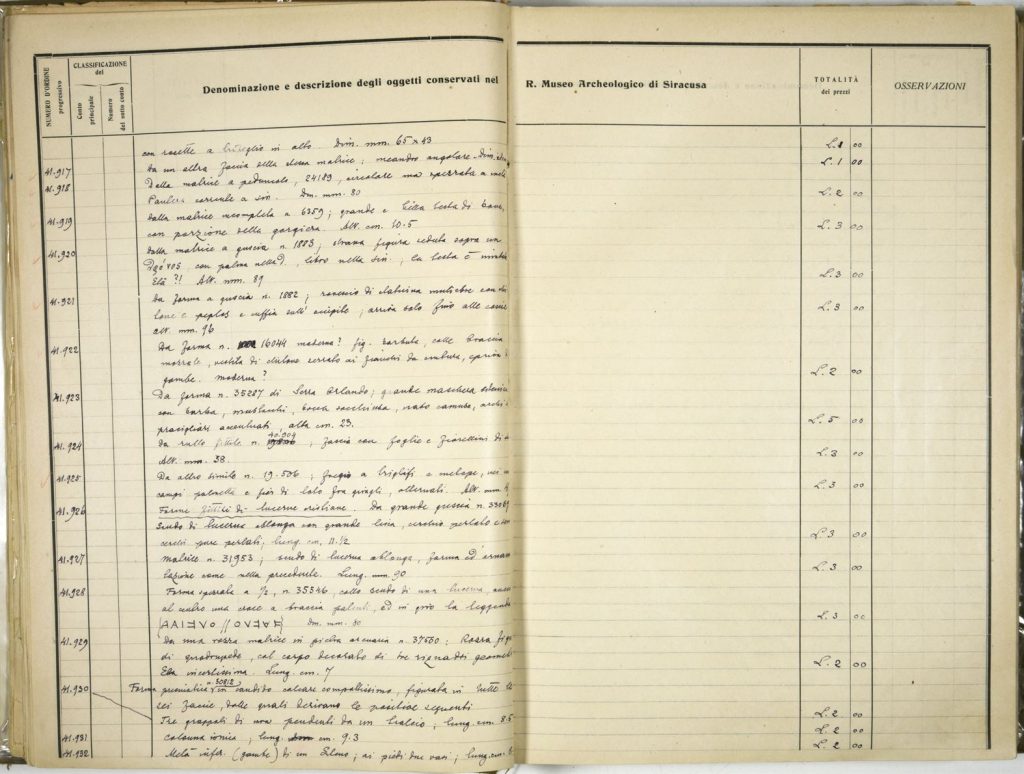 NUMERO D'ORDINE progressivo
CLASSIFICAZIONE del
Conto principale
Numero del sotto conto
Denominazione e descrizione degli oggetti conservati nel R. Museo Archeologico di Siracusa
TOTALITÀ dei prezzi
OSSERVAZIONI
con rosette a in alto. Dim. mm. 65 x 43 L. 1 00
41.917 da un altra faccia della stessa matrice; meandro angolare. Dim. L. 1 00
41.918 Dalla matrice a peduncolo, 24189, circolare ma spezzata a metà
corrente a sin. Dm. mm. 80 L. 2 00
41.919 dalla matrice incompleta n. 6359; grande e bella testa di
con porzione della gorgiera. Alt. cm. 10.5 L. 3 00
41.920 dalla matrice a guscio n. 1883; strana figura seduta sopra un
con palma nella d., libro nella sin.; la testa è
Età ?! Alt. mm. 89 L. 3 00
41.921 da forma a guscio n. 1882; di statuina muliebre con
e peplos e cuffia sull' occipite; arriva solo fino alle coscie
Alt. mm. 96 L. 3 00
41.922 Da forma n. 16044 moderna? fig. barbuta, colle braccia
vestita di chitone serrato ai fianchi da cintura,
gambe. moderna? L. 2 00
41.923 Da forma n. 35287 di Serra Orlando; grande maschera
con barba, mustacchi, bocca socchiusa, naso camuso,
accentuati, alta cm. 23. L. 5 00
41.924 da rullo fittile n. 40.904; fascia con foglie e fiorellini di
Alt. mm. 38 L. 3 00
41.925 Da altro simile n. 19.506; fregio a triglifi e metope,
campi palmetta e fior di loto fra alternati. Alt. mm. L. 3 00
41.926 Forme fittili di lucerne cristiane. Da grande guscio n.
Scudo di lucerna oblunga con grande cerchio perlato e
cerchi pure perlati; lung. cm. 11.1/2 L. 3 00
41.927 Matrice n. 31953; scudo di lucerna oblunga, forma ed
come nella precedente. Lung. mm. 90 L. 3 00
41.928 Forma spezzata a 1/2, n. 35346, collo scudo di una lucerna,
al centro una croce a braccia ed in giro la leggenda
dm. mm. 80 L. 3 00
41.929 Da una rozza matrice in pietra n. 37550: Rozza
di quadrupede, col corpo decorato di tre riquadri
Età incertissima. Lung. cm. 7 L. 2 00
41.930 Forma n. 30812 in candido calcare compattissimo, figurata in tutte le
sei faccie, dalle quali derivano le positive seguenti
Tre grappoli di uva pendenti da un tralcio; lung. cm. 8.5 L. 2 00
41.931 Colonna ionica; lung. cm. 9.3 L. 2 00
41.932 Metà infer. (gambe) di un Sileno; ai piedi due vasi; lung. cm. L. 2 00